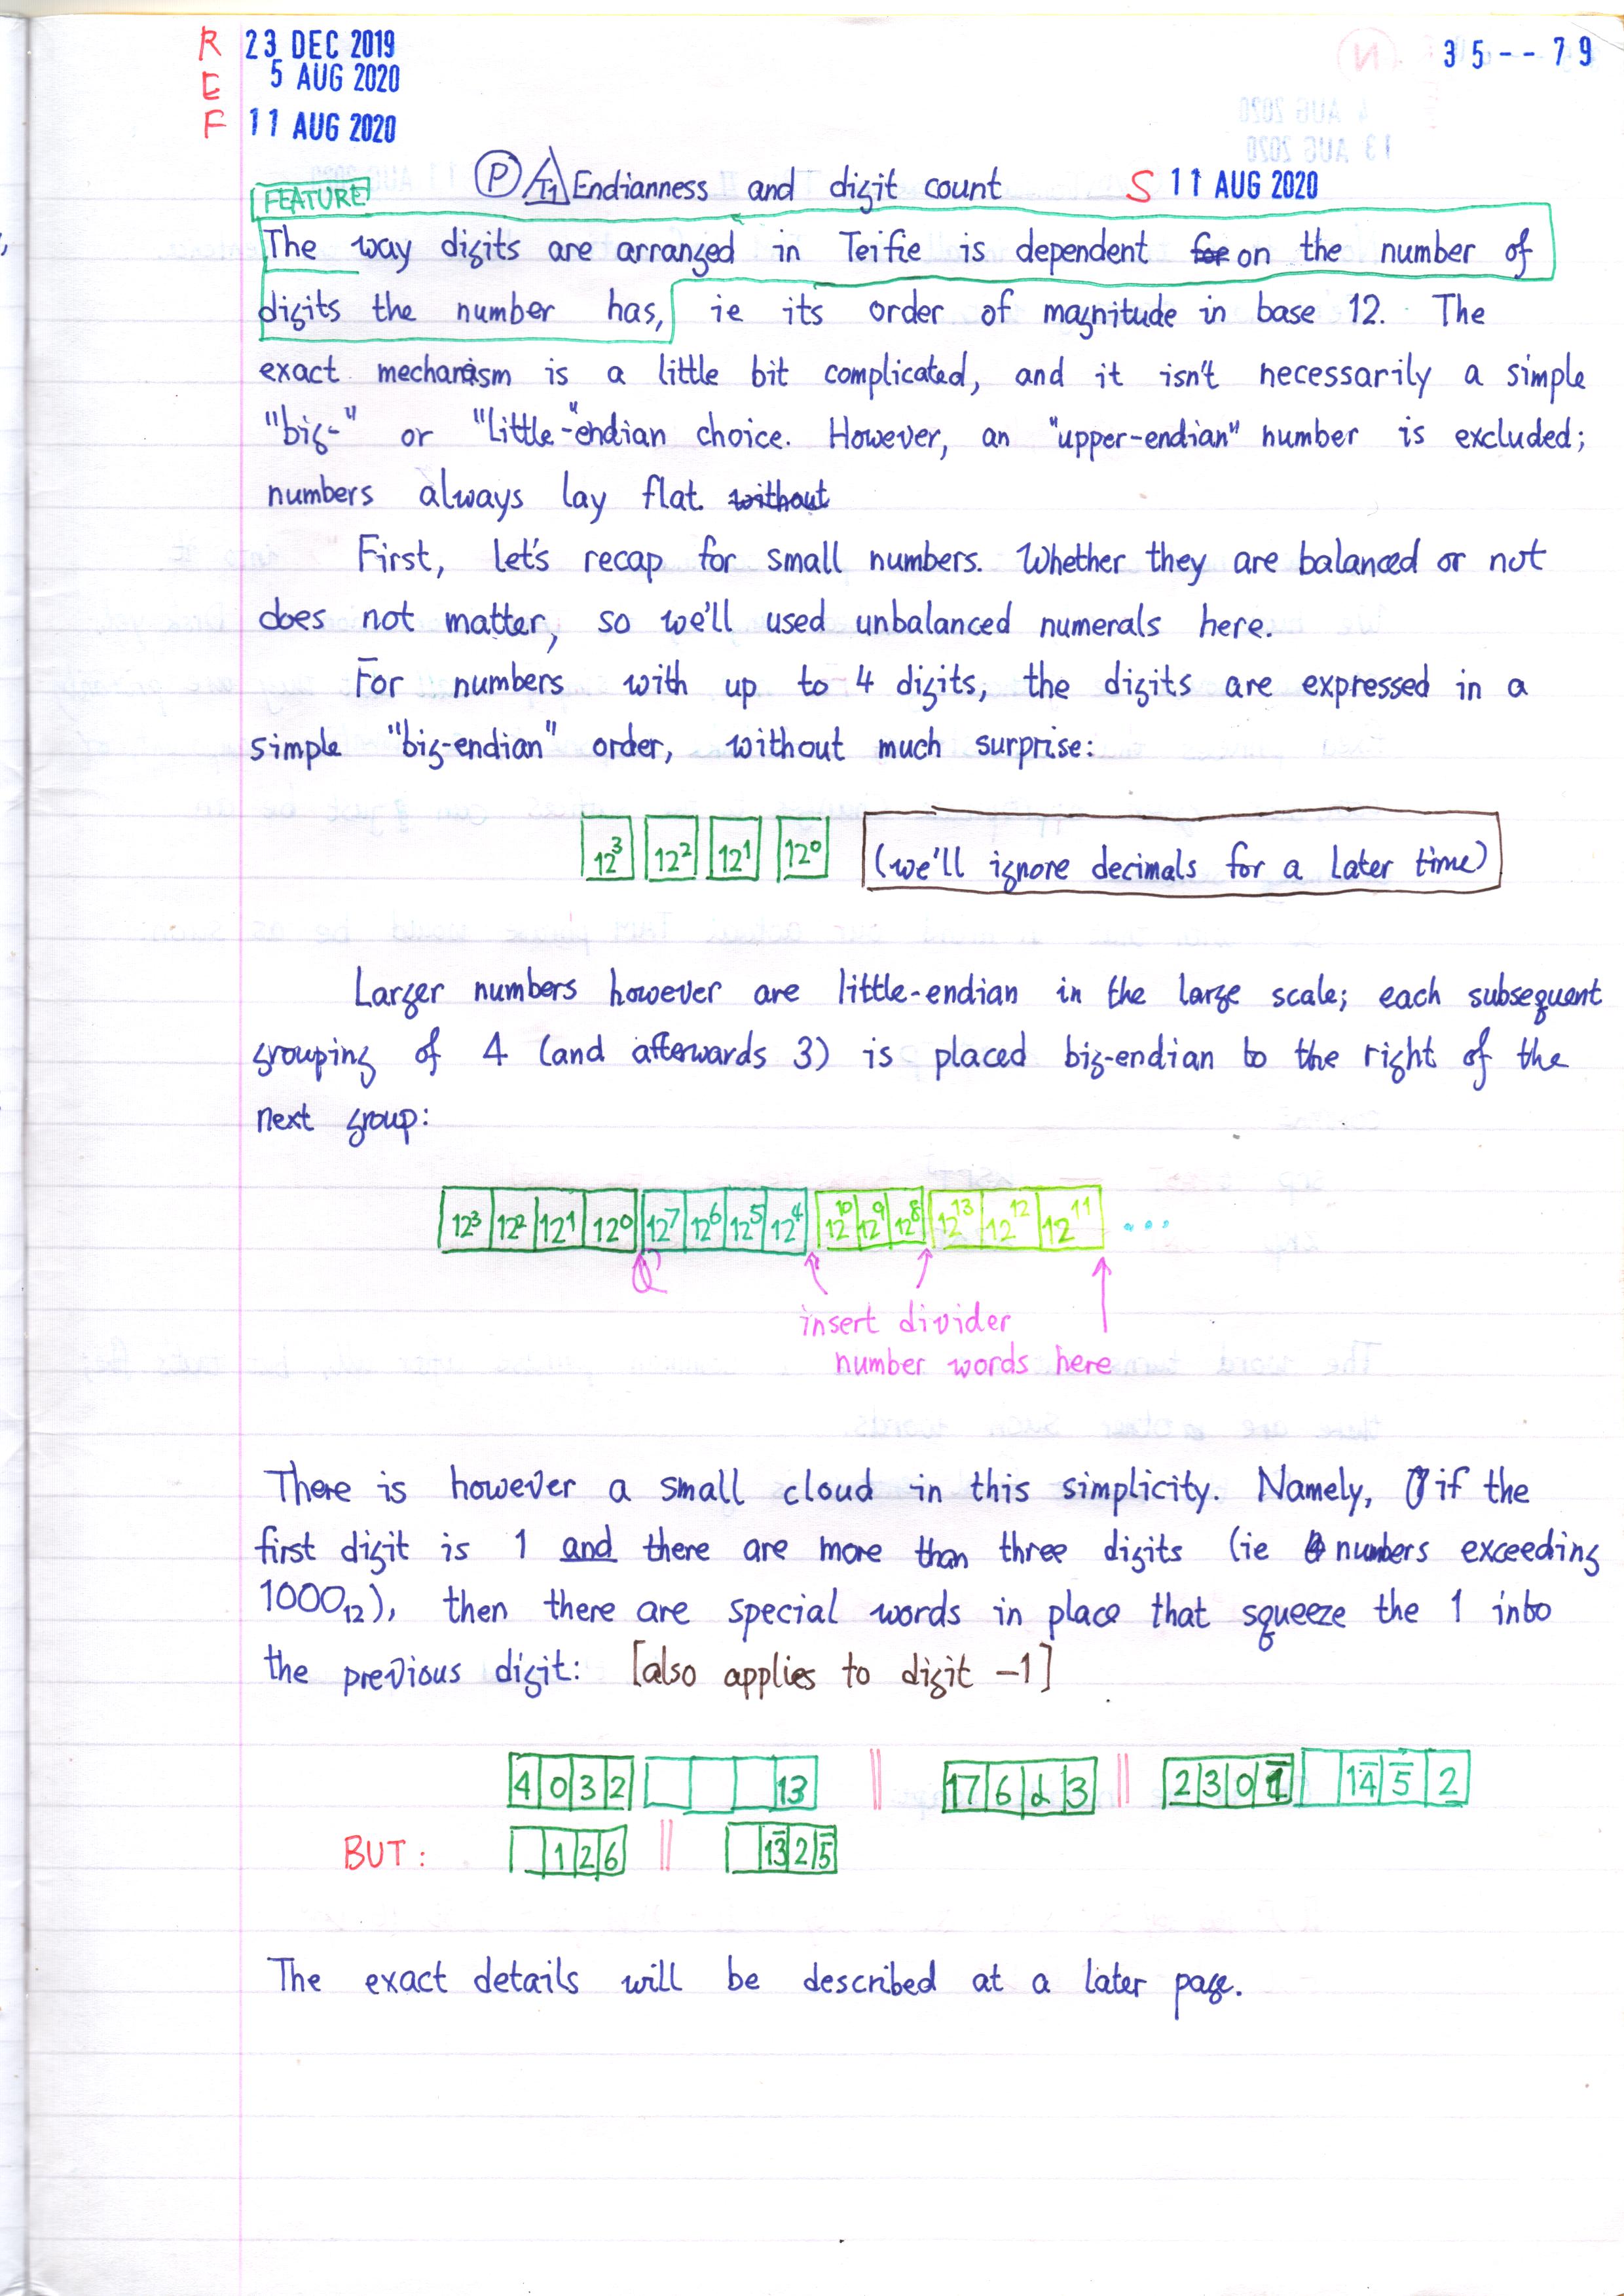 R 23 DEC 2019
E 5 AUG 2020
F 11 AUG 2020
35--79
P T1 Endianness and digit count S 11 AUG 2020
FEATURE
The way digits are arranged in Teifie is dependent for on the number of
digits the number has, ie its order of magnitude in base 12. The
exact mechanism is a little bit complicated, and it isn't necessarily a simple
"big-" or "little-"endian choice. However, an "upper-endian" number is excluded;
numbers always lay flat. without
First, let's recap for small numbers. Whether they are balanced or not
does not matter, so we'll used unbalanced numerals here.
For numbers with up to 4 digits, the digits are expressed in a
simple "big-endian" order, without much surprise:
12³ 12² 12¹ 12⁰ (we'll ignore decimals for a later time)
Larger numbers however are little-endian in the large scale; each subsequent
grouping of 4 (and afterwards 3) is placed big-endian to the right of the
next group:
12³ 12² 12¹ 12⁰ 12⁷ 12⁶ 12⁵ 12⁴ 12¹⁰ 12⁹ 12⁸ 12¹³ 12¹² 12¹¹ ...
insert divider
number words here
There is however a small cloud in this simplicity. Namely, if the
first digit is 1 and there are more than three digits (ie numbers exceeding
1000₁₂), then there are special words in place that squeeze the 1 into
the previous digit: [also applies to digit -1]
4 0 3 2 13 || 17 6 d 3 || 2 3 0 1̅ 14̅ 5̅ 2
BUT: 1 2 6 || 13̅ 2 5̅
The exact details will be described at a later page.